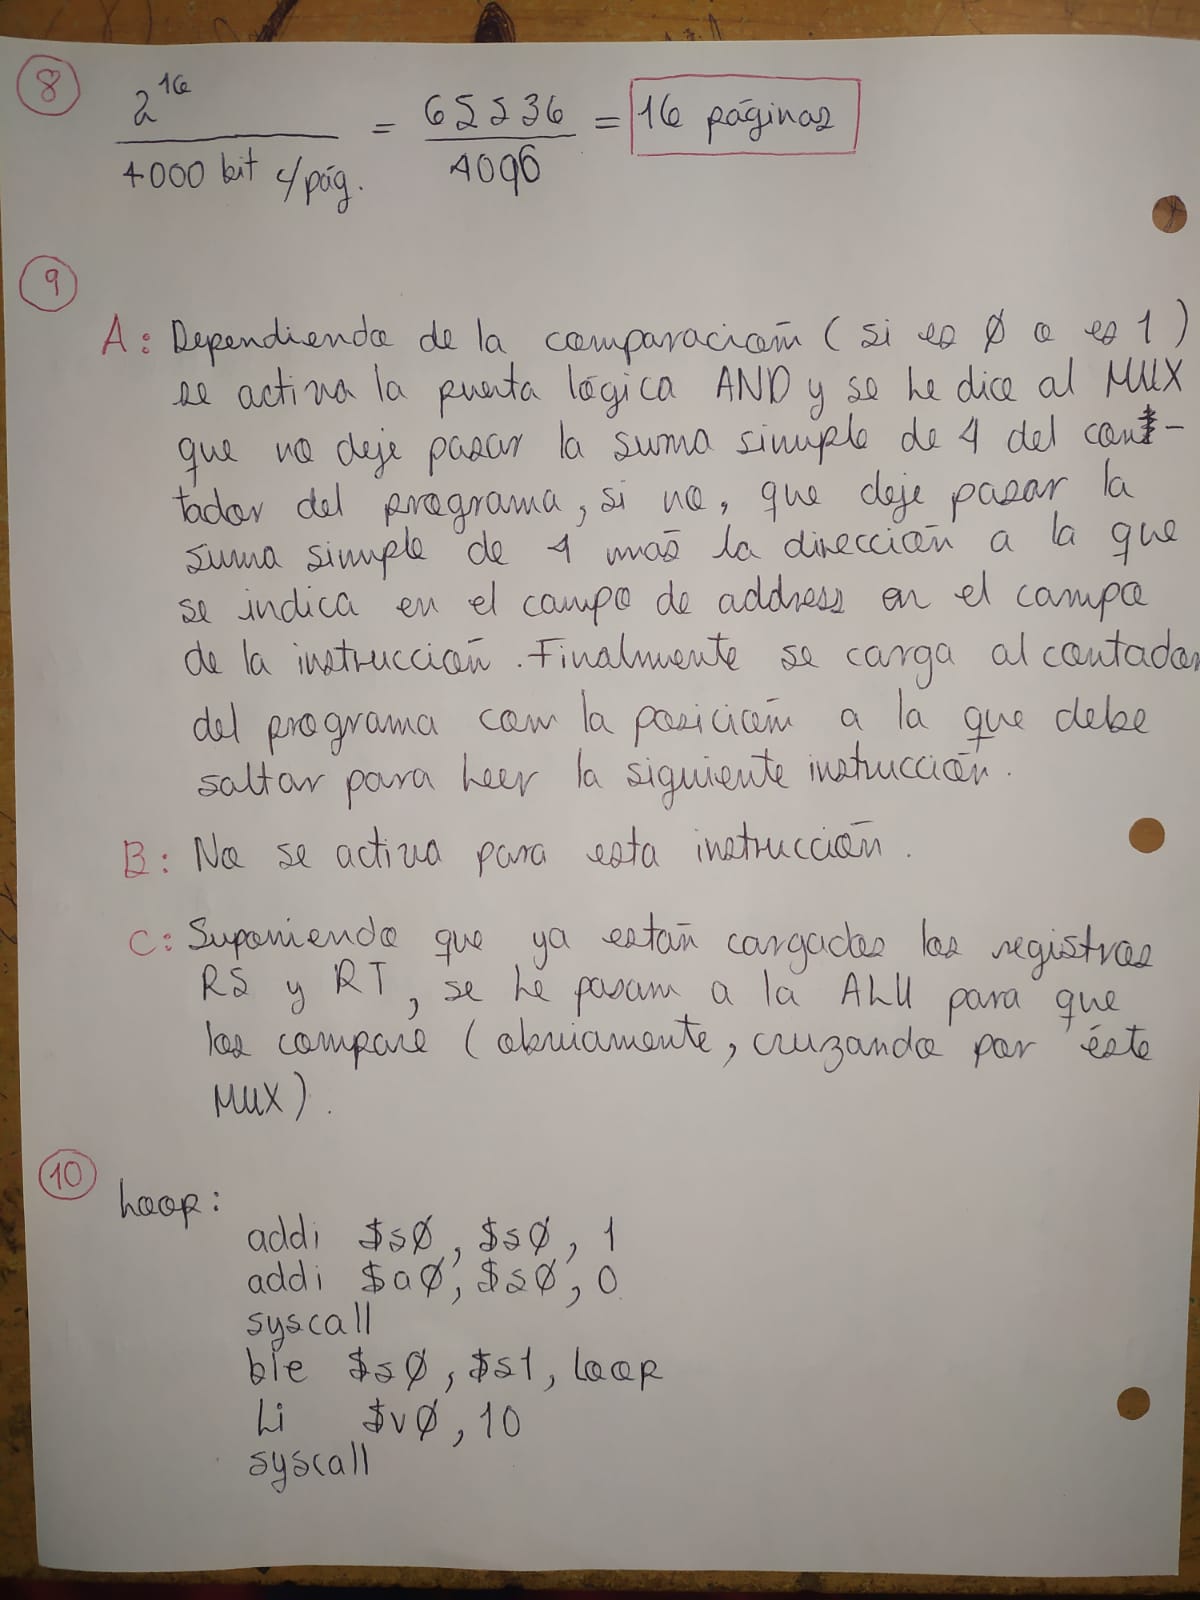 8
2^16 / 4000 bit c/pág. = 65536 / 4096 = 16 páginas
9
A: Dependiendo de la comparación (si es 0 o es 1)
se activa la puerta lógica AND y se le dice al MUX
que no deje pasar la suma simple de 4 del con-
tador del programa, si no, que deje pasar la
suma simple de 4 más la dirección a la que
se indica en el campo de address en el campo
de la instrucción. Finalmente se carga al contador
del programa com la posición a la que debe
saltar para leer la siguiente instrucción.
B: No se activa para esta instrucción.
C: Suponiendo que ya están cargados los registros
RS y RT, se le pasam a la ALU para que
los compare (obviamente, cruzando por éste
MUX).
10
Loop:
addi $s0, $s0, 1
addi $a0, $s0, 0
syscall
ble $s0, $s1, Loop
Li $v0, 10
syscall